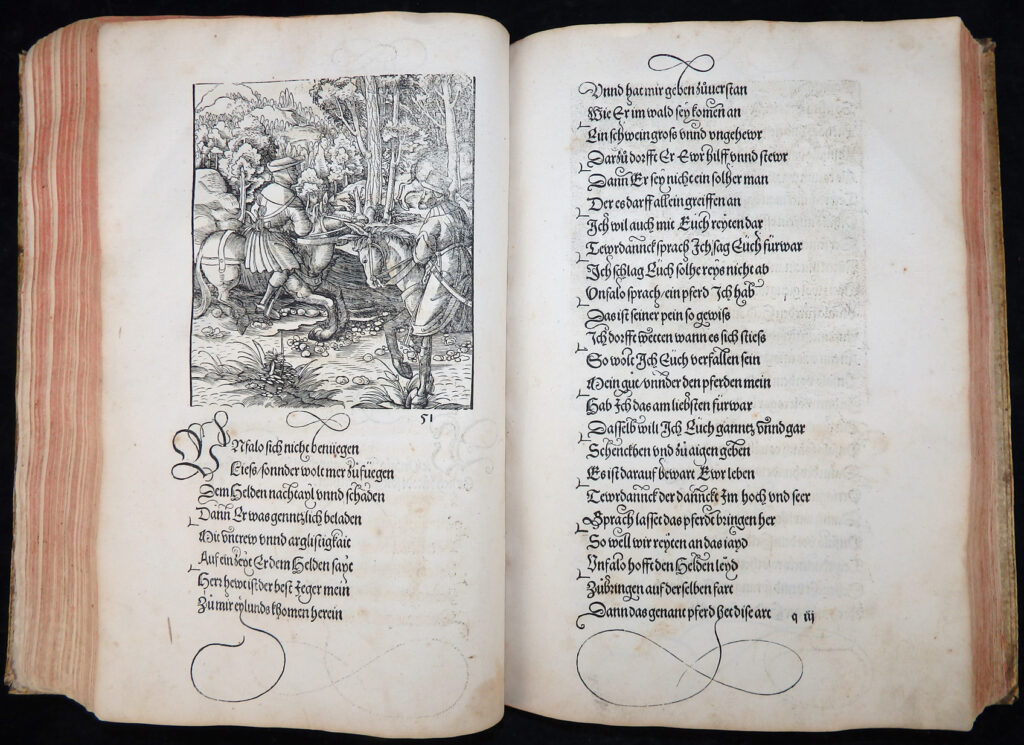 51
VNfalo sich nicht benuegen
Liess/sonnder wolt mer zůfuegen
Dem Helden nachtayl vnnd schaden
Dann Er was genntzlich beladen
Mit vntrew vnnd arglistigkait
Auf ein zeyt Er dem Helden sayt
Herr hewt ist der best Jeger mein
Zů mir eylunds khomen herein
Vnnd hat mir geben zůuerstan
Wie Er im wald sey komen an
Ein schwein gross vnnd vngehewr
Darzů dorfft Er Ewr hilff vnnd stewr
Dann Er sey nicht ein solher man
Der es darff allein greiffen an
Ich wil auch mit Euch reyten dar
Tewrdannck sprach Ich sag Euch fürwar
Ich schlag Euch solhe reys nicht ab
Vnfalo sprach/ein pferd Ich hab
Das ist seiner pein so gewiss
Ich dorfft wetten wann es sich stiess
So wolt Ich Euch verfallen sein
Mein gůt/vnnder den pferden mein
Hab Ich das am liebsten fürwar
Dasselb will Ich Euch ganntz vnnd gar
Schencken vnd zů aigen geben
Es ist darauf bewart Ewr leben
Tewrdannck der dannckt Im hoch vnd seer
Sprach lasset das pferdt bringen her
So well wir reyten an das iayd
Vnfalo hofft den Helden leyd
Zůbringen auf derselben fart
Dann das genant pferd het dise art
q iij